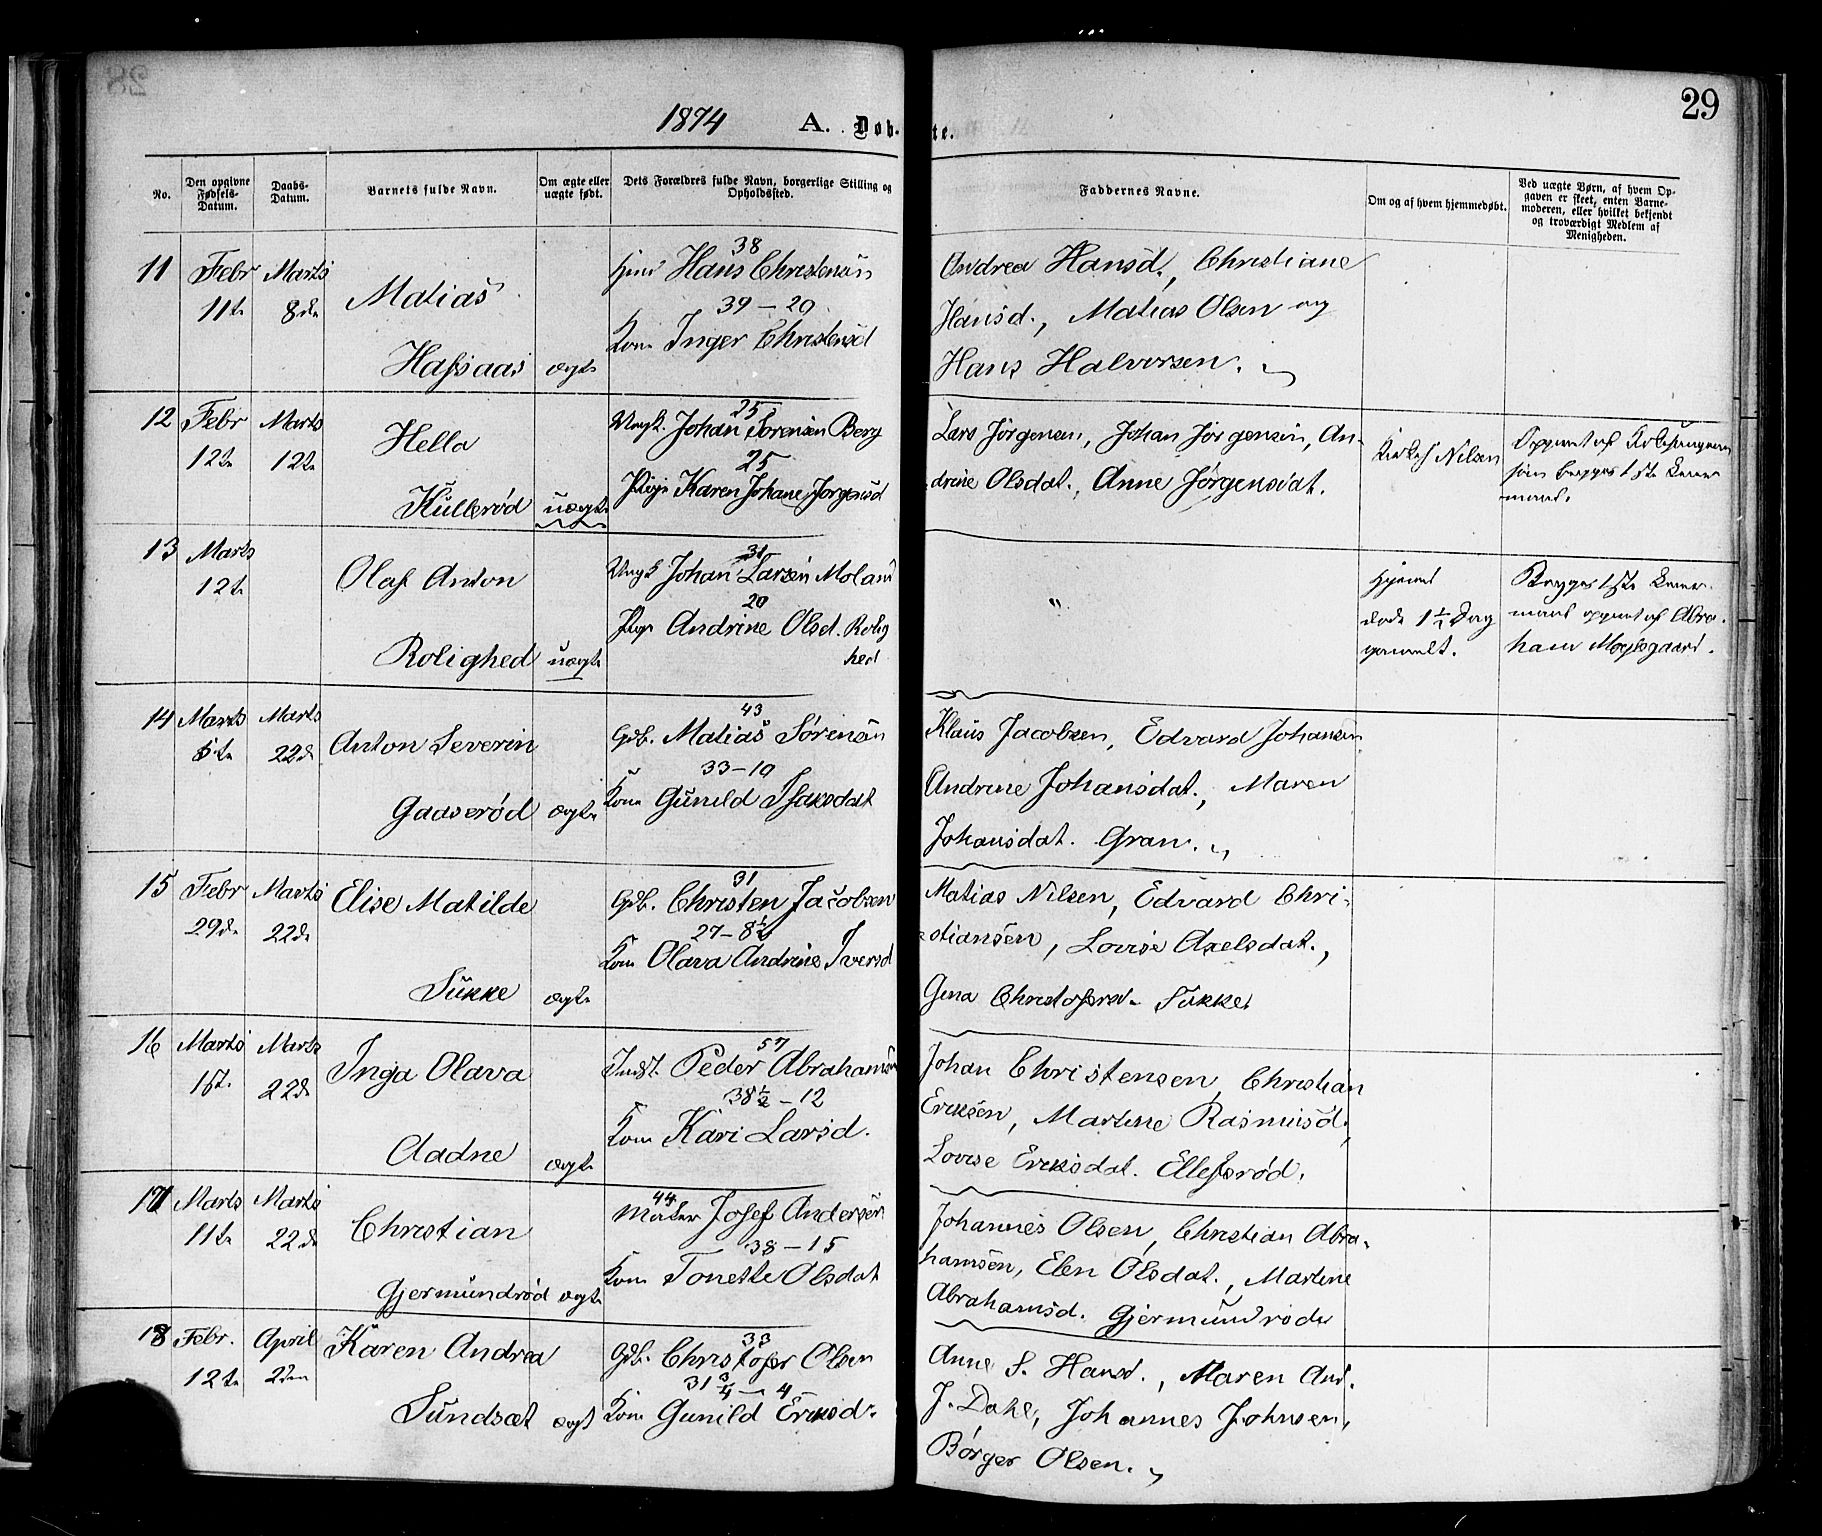 29
1874 A. Døb-te.
No.
Den opgivne Fødsels-Datum.
Daabs-Datum.
Barnets fulde Navn.
Om ægte eller uægte født.
Dets Forældres fulde Navn, borgerlige Stilling og Opholdssted.
Faddernes Navne.
Om og af hvem hjemmedøbt.
Ved uægte Børn, af hvem Op-
gaven er skeet, enten Barne-
moderen, eller hvilket bekjendt
og troværdigt Medlem af
Menigheden.
11 Febr 11te Marts 8de
Matias
Hafsaas ægte
38
Hans Christensen
39 - 20
Kone Inger Christensd
Andrea Hansd., Christiane
Hansd., Matias Olsen og
Hans Halvorsen.
12 Febr 12te Marts 12te
Hella
Kullerød uægte
25
Ungk. Johan Sørensen Berg
25
Pige Karen Johane Jørgensd
Lars Jørgensen, Johan Jørgensen, An-
drine Olsdat., Anne Jørgensdat.
Kirkes Nilsen
13 Marts 12te
Olaf Anton
Rolighed uægte
31
Ungk Johan Larsen Moland
20
Pige Andrine Olsd. Rolig
hed
"
Hjemd
døde 1 1/2 Dag
gammelt.
Begges 1ste Leier-
maal opgivet af Abra-
ham
14 Marts 5te Marts 22de
Anton Severin
Gaaserød ægte
43
Gdb. Matias Sørensen
33-10
Kone Gunild Isaksdat
Klaus Jacobsen, Edvard Johansen
Andrine Johansdat., Maren
Johansdat. Gran.
15 Febr 29de Marts 22de
Elise Matilde
Sukke ægte
31
Gdb. Christen Jacobsen
27-8 1/2
Kone Olava Andrine Iversd
Matias Nilsen, Edvard Chri-
stiansen, Lovise Axelsdat.,
Gina Christofersd. Sukke
16 Marts 1st. Marts 22de
Inga Olava
Aadne ægte
57
Indst. Peder Abrahamsen
38 1/2 - 12
Kone Kari Larsd.
Johan Christensen, Christian
Eriksen, Martine Rasmusd,
Lovise Eriksdat. Ellefsrød.
17 Marts 11te Marts 22de
Christian
Gjermundrød ægte
44
Josef Andersen
38 - 15
Kone Tonette Olsdat
Johannes Olsen, Christian Abra-
hamsen, Elen Olsdat., Martine
Abrahamsd. Gjermundrød
18 Febr. 12te April 2den
Karen Andrea
Sundsæt ægt
33
Gdb. Christofer Olsen
31 3/4 - 4
Kone Gunild Eriksd.
Anne S. Hansd., Maren And.
J. Dahl, Johannes Johnsen,
Børger Olsen.